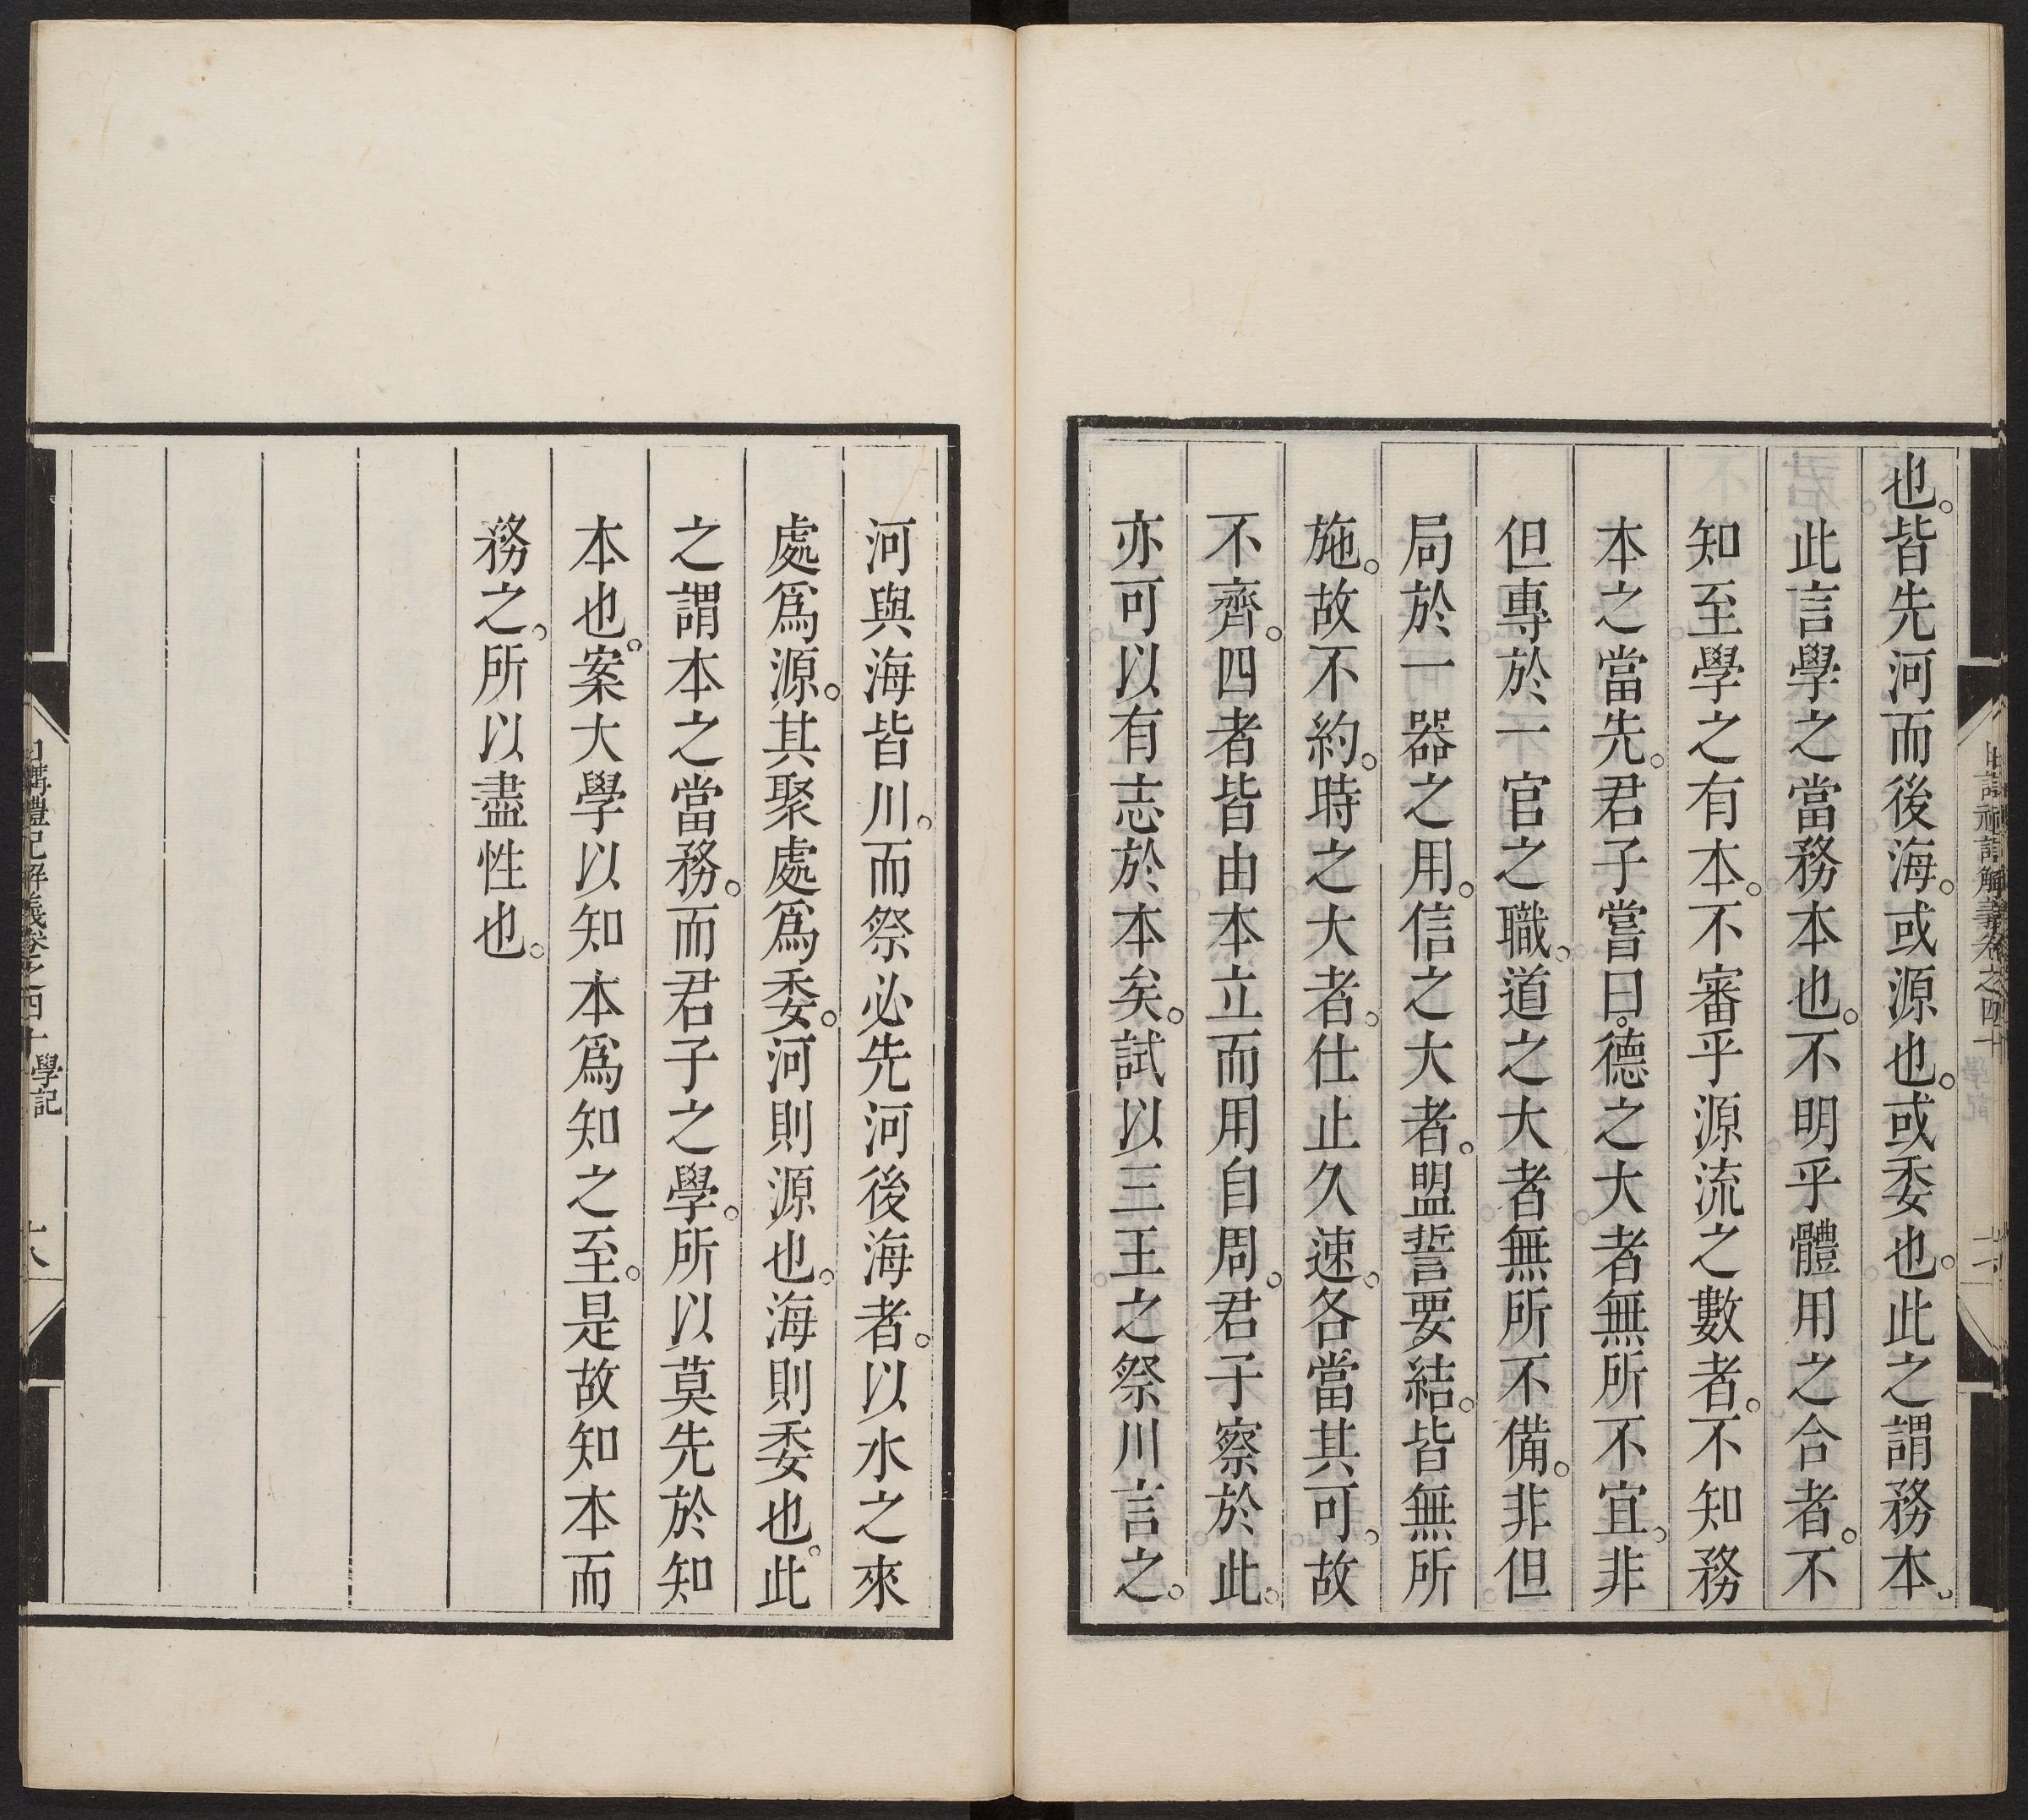 也。皆先河而後海。或源也。或委也。此之謂務本。
此言學之當務本也。不明乎體用之合者。不
知至學之有本。不審乎源流之數者。不知務
本之當先。君子嘗曰。德之大者無所不宜。非
但專於一官之職。道之大者無所不備。非但
局於一器之用。信之大者。盟誓要結。皆無所
施。故不約。時之大者。仕止久速。各當其可。故
不齊。四者皆由本立而用自周。君子察於此。
亦可以有志於本矣。試以三王之祭川言之。
河與海皆川。而祭必先河後海者。以水之來
處爲源。其聚處爲委。河則源也。海則委也。此
之謂本之當務。而君子之學。所以莫先於知
本也。案大學以知本爲知之至。是故知本而
務之。所以盡性也。
日講禮記解義卷之四十 學記 十八